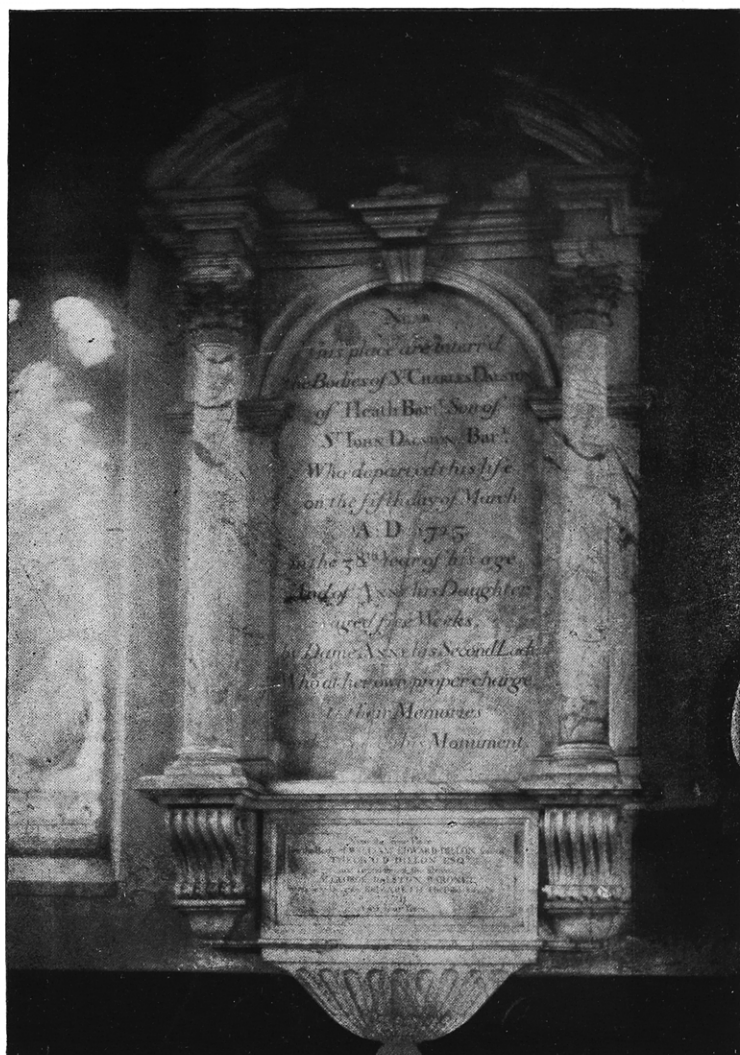 Near
this place are Interr'd
the Bodies of Sr. CHARLES DALSTON
of Heath Bart. Son of
Sr. IOHN DALSTON, Bart.
Who departed this life
on the fifth day of March
A D 1723
in the 38th Year of his age
And of ANNE his Daughter
aged five Weeks,
by Dame ANNE his Second Lady
Who at her own proper charge
to their Memories
this Monument
EDWARD DILLON
THEOBALD DILLON ESQR
DALSTON BARONET
ELIZABETH